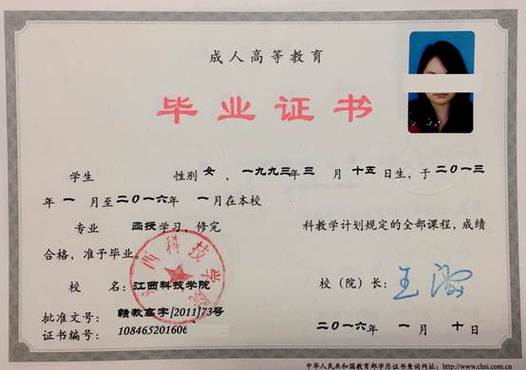 成人高等教育
毕业证书
学生 性别 女 ,一九九三年 三 月 十五日生,于 二〇一三
年 一 月至二〇一六年 一月在本校
专业 函授学习,修完 科教学计划规定的全部课程,成绩
合格,准予毕业。
校 名:江西科技学院 校(院)长:
批准文号:赣教高字[2011]73号
证书编号:108465201606 二〇一六年 一 月 十 日
江西科技学院
中华人民共和国教育部学历证书查询网址:http://www.chsi.com.cn